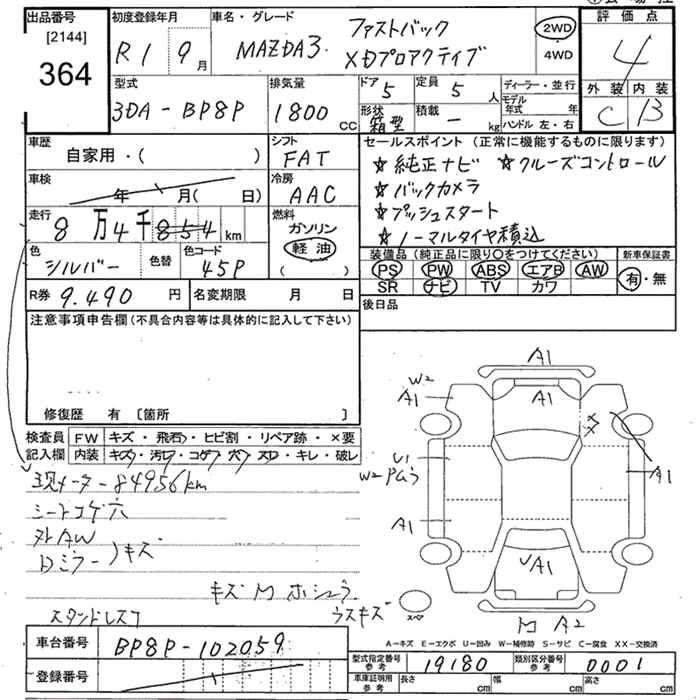 出品番号
[2144]
364
初度登録年月
R1 9月
車名・グレード
MAZDA3 ファストバック
XDプロアクティブ
2WD
4WD
評価点
4
外装 内装
C B
型式
3DA-BP8P
排気量
1800 CC
ドア
5
定員
5 人
形状
箱型
積載
- kg
ディーラー・並行
モデル年式 年
ハンドル 左・右
車歴
自家用・( )
シフト
FAT
車検
年 月( 日)
冷房
AAC
走行
8万4千854km
燃料
ガソリン
軽油
( )
色
シルバー
色替
色コード
45P
R券 9.490 円
名変期限 月 日
セールスポイント (正常に機能するものに限ります)
☆純正ナビ ☆クルーズコントロール
☆バックカメラ
☆プッシュスタート
☆ノーマルタイヤ積込
装備品 (純正品に限り○をつけてください)
PS PW ABS エアB AW
SR ナビ TV カワ
新車保証書
有・無
後日品
注意事項申告欄 (不具合内容等は具体的に記入して下さい)
修復歴 有 [箇所 ]
検査員記入欄
FW キズ・飛石・ヒビ割・リペア跡・×要
内装 キズ・汚レ・コゲ・穴・スレ・キレ・破レ
現メーター84956km
シートコゲ穴
外AW
ドミラーノキズ
キズ M ホシュウ
スタンドレスコ
ウスキズ
A1
W2
A1
A1
U1
W2 Pムラ
A1
A1
A1
M A2
スペア
A-キズ E-エクボ U-凹み W-補修跡 S-サビ C-腐食 XX-交換済
車台番号 BP8P-102059
登録番号
型式指定番号 参考 19180
類別区分番号 参考 0001
車庫証明用 参考 長さ cm 幅 cm 高さ cm